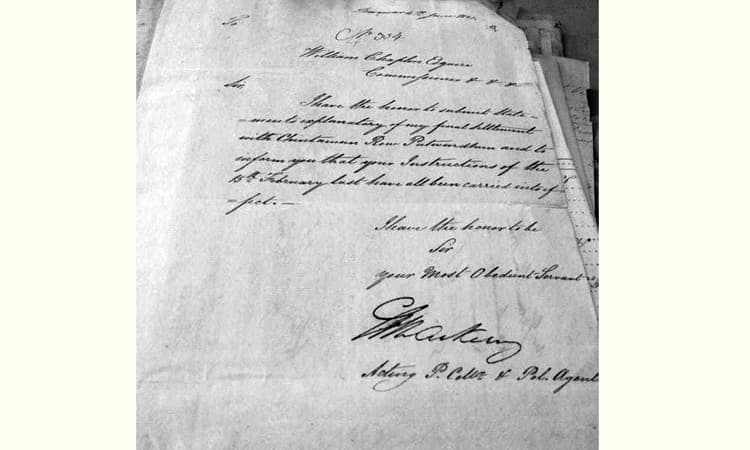 To
No 334
William Chaplin Esquire
Commissioner & & &
Sir,
I have the honor to submit State-
-ments explanatory of my final settlement
with Chintamun Row Putwardhun and to
inform you that your Instructions of the
15th February last have all been carried into ef-
-fect. —
I have the honor to be
Sir
your Most Obedient Servant
Acting P. Collr & Pol. Agent